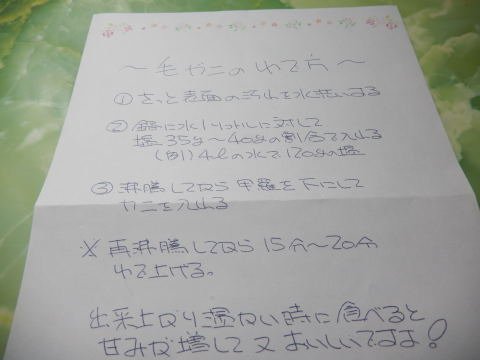 ～毛ガニのゆで方～
① さっと表面の汚れを水洗いする
② 鍋に水1リットルに対して
塩35g～40gの割合で入れる
(例) 4ℓの水で120gの塩
③ 沸騰してから甲羅を下にして
カニを入れる
※再沸騰してから15分～20分
ゆで上げる。
出来上がり温かい時に食べると
甘みが増して又おいしいですよ!